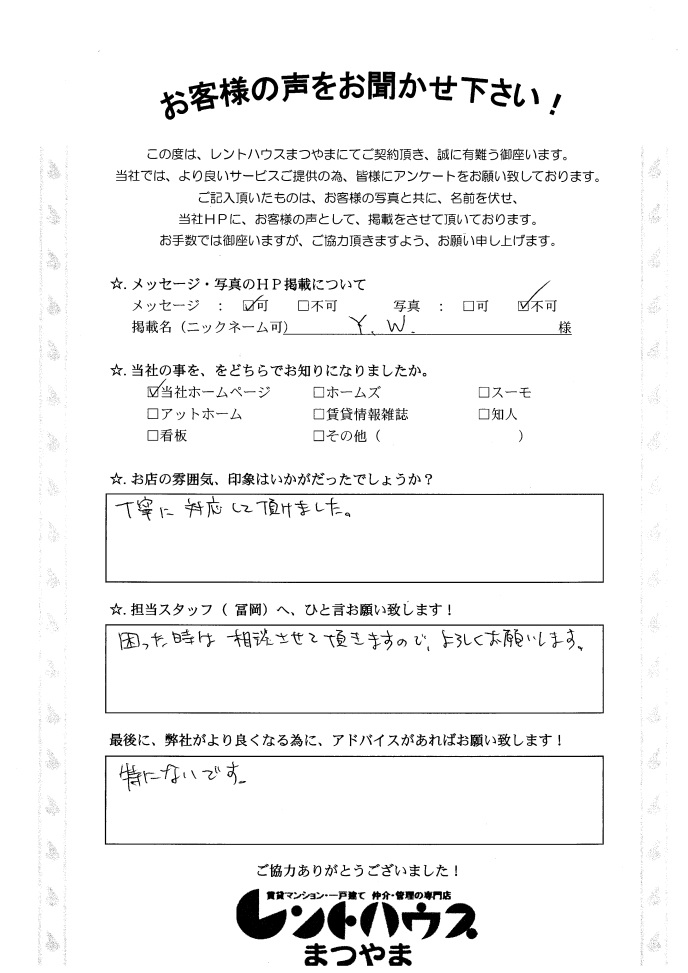 お客様の声をお聞かせ下さい！
この度は、レントハウスまつやまにてご契約頂き、誠に有難う御座います。
当社では、より良いサービスご提供の為、皆様にアンケートをお願い致しております。
ご記入頂いたものは、お客様の写真と共に、名前を伏せ、
当社ＨＰに、お客様の声として、掲載をさせて頂いております。
お手数では御座いますが、ご協力頂きますよう、お願い申し上げます。
☆．メッセージ・写真のＨＰ掲載について
メッセージ ： ☑可 □不可 写真 ： □可 ☑不可
掲載名（ニックネーム可） Y．W． 様
☆．当社の事を、をどちらでお知りになりましたか。
☑当社ホームページ □ホームズ □スーモ
□アットホーム □賃貸情報雑誌 □知人
□看板 □その他（ ）
☆．お店の雰囲気、印象はいかがだったでしょうか？
丁寧に対応して頂けました。
☆．担当スタッフ（ 冨岡）へ、ひと言お願い致します！
困った時は相談させて頂きますので、よろしくお願いします。
最後に、弊社がより良くなる為に、アドバイスがあればお願い致します！
特にないです。
ご協力ありがとうございました！
賃貸マンション・一戸建て 仲介・管理の専門店
レントハウス
まつやま